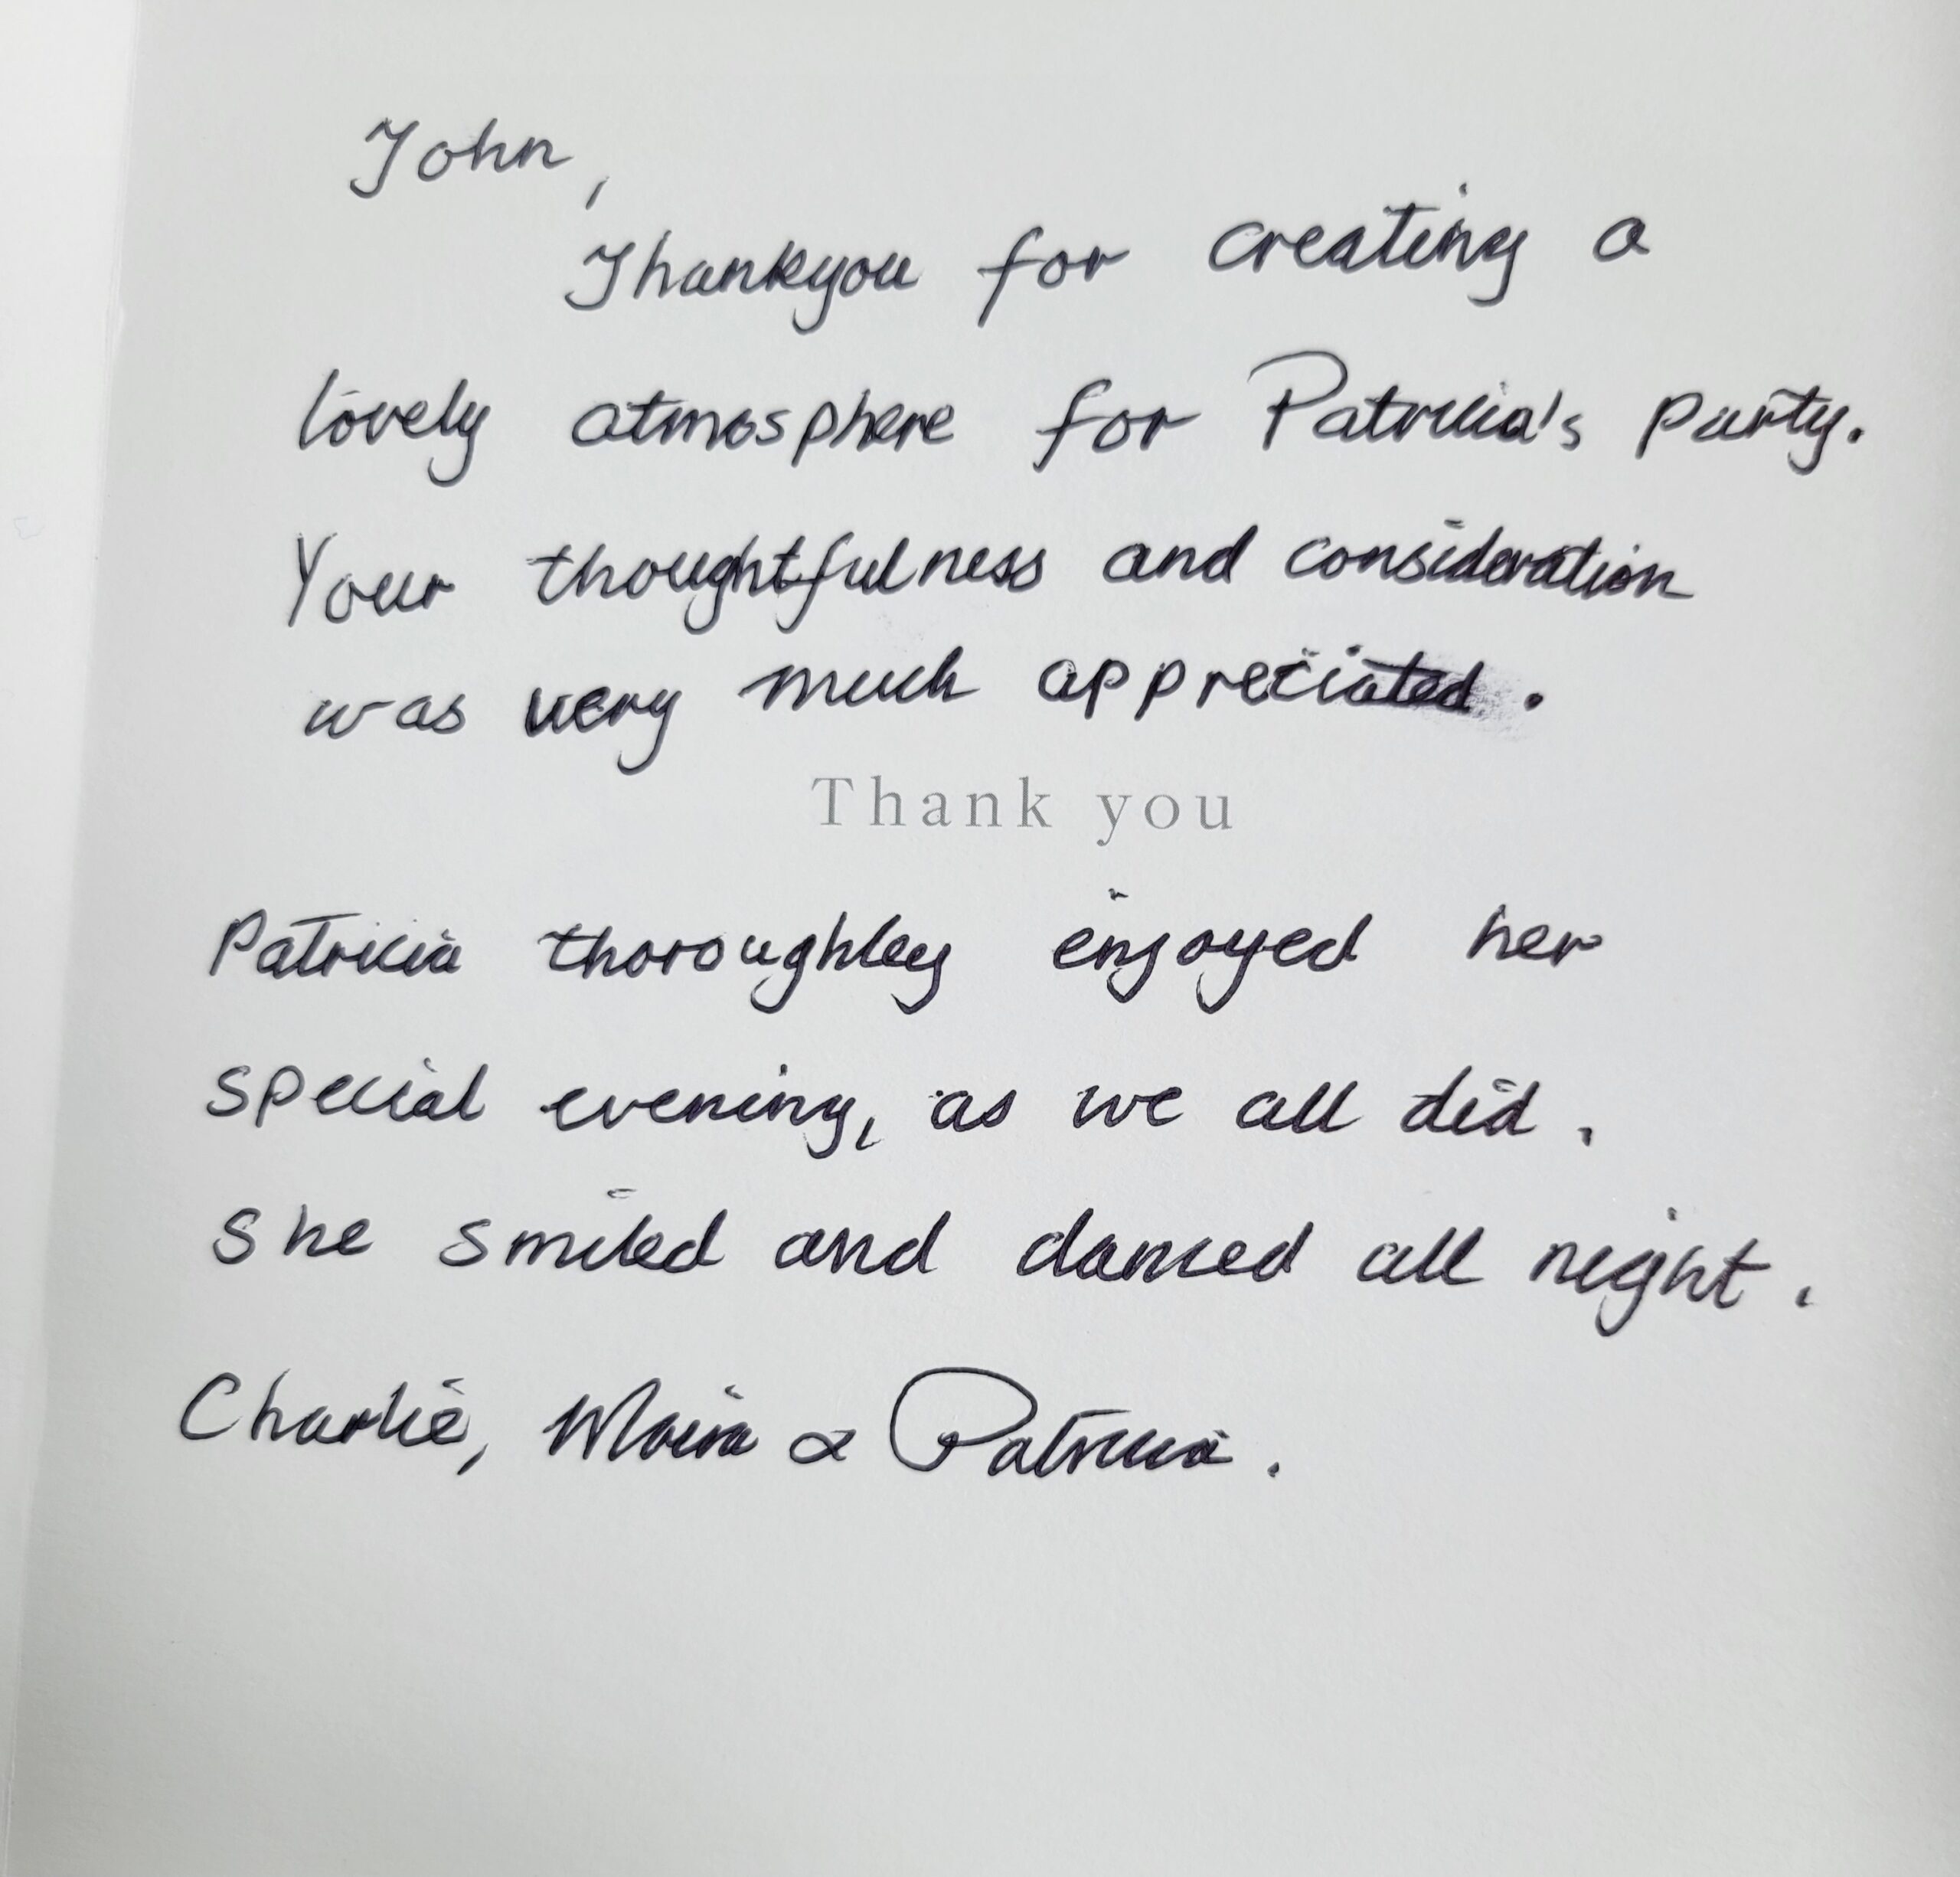 John,
Thankyou for creating a
lovely atmosphere for Patricia's party.
Your thoughtfulness and consideration
was very much appreciated.
Thank you
Patricia thoroughley enjoyed her
special evening, as we all did.
She smiled and danced all night.
Charlie, Moira & Patricia.